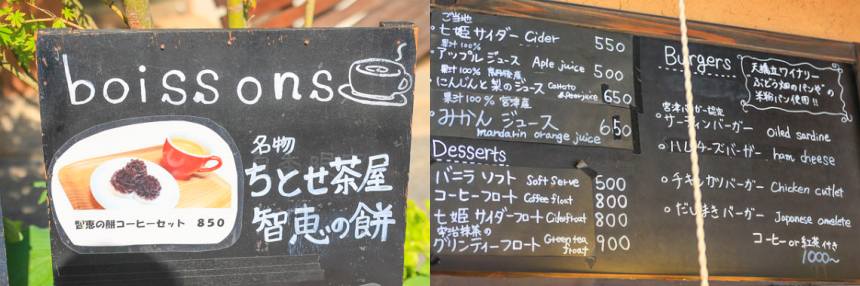 boissons
名物
ちとせ茶屋
智恵の餅
智恵の餅コーヒーセット 850
ご当地
七姫サイダー Cider 550
果汁100%
アップルジュース Aple juice 500
果汁100%
にんじんと梨のジュース Carrot & Pear juice 650
果汁100% 宮津産
みかんジュース 650
mandarin orange juice
Desserts
バニラソフト Soft Serve 500
コーヒーフロート Coffee float 800
七姫サイダーフロート Ciderfloat 800
宇治抹茶の
グリンティーフロート Green tea float 900
Burgers
天橋立ワイナリー
ぶどう畑のパンやの
米粉パン使用!!
宮津バーガー協定
サーディンバーガー Oiled sardine
ハムチーズバーガー ham cheese
チキンカツバーガー Chicken cutlet
だしまきバーガー Japanese omelete
コーヒー or 紅茶付き
1000~